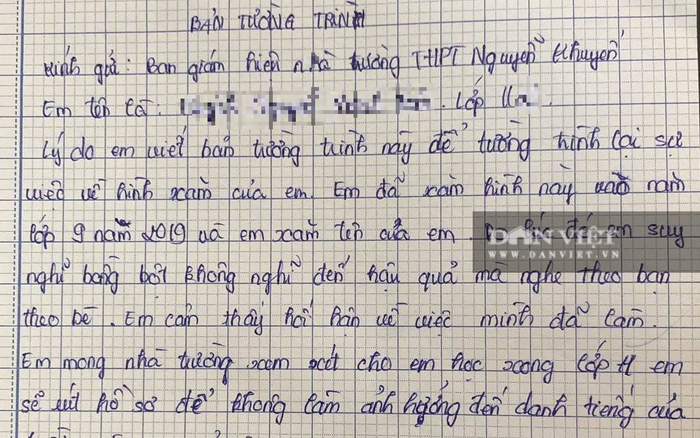 BẢN TƯỜNG TRÌNH
Kính gửi: Ban giám hiệu nhà trường THPT Nguyễn Khuyến
Em tên là: Lớp 11a
Lý do em viết bản tường trình này để tường trình lại sự
việc về hình xăm của em. Em đã xăm hình này vào năm
lớp 9 năm 2019 và em xăm tên của em. em suy
DÂN VIỆT
WWW.DANVIET.VN
nghĩ bồng bột không nghĩ đến hậu quả mà nghe theo bạn
theo bè. Em cảm thấy hối hận về việc mình đã làm.
Em mong nhà trường xem xét cho em học xong lớp 11 em
sẽ rút hồ sơ để không làm ảnh hưởng đến danh tiếng của